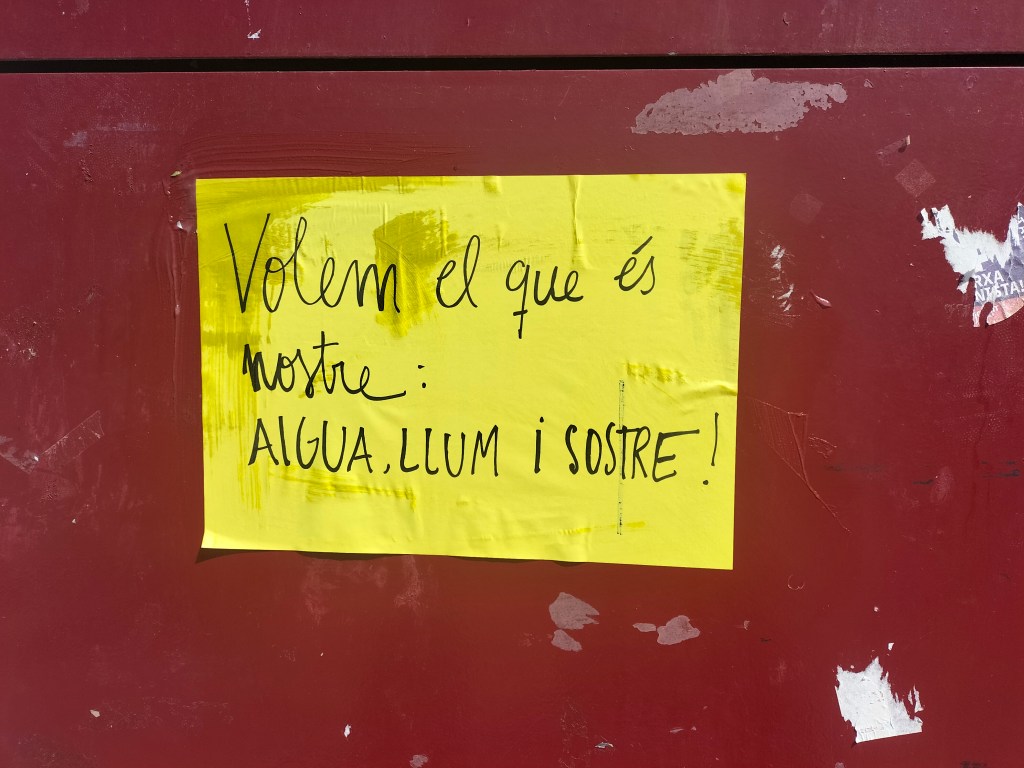 Volem el que és
nostre:
AIGUA, LLUM i SOSTRE!
RXA